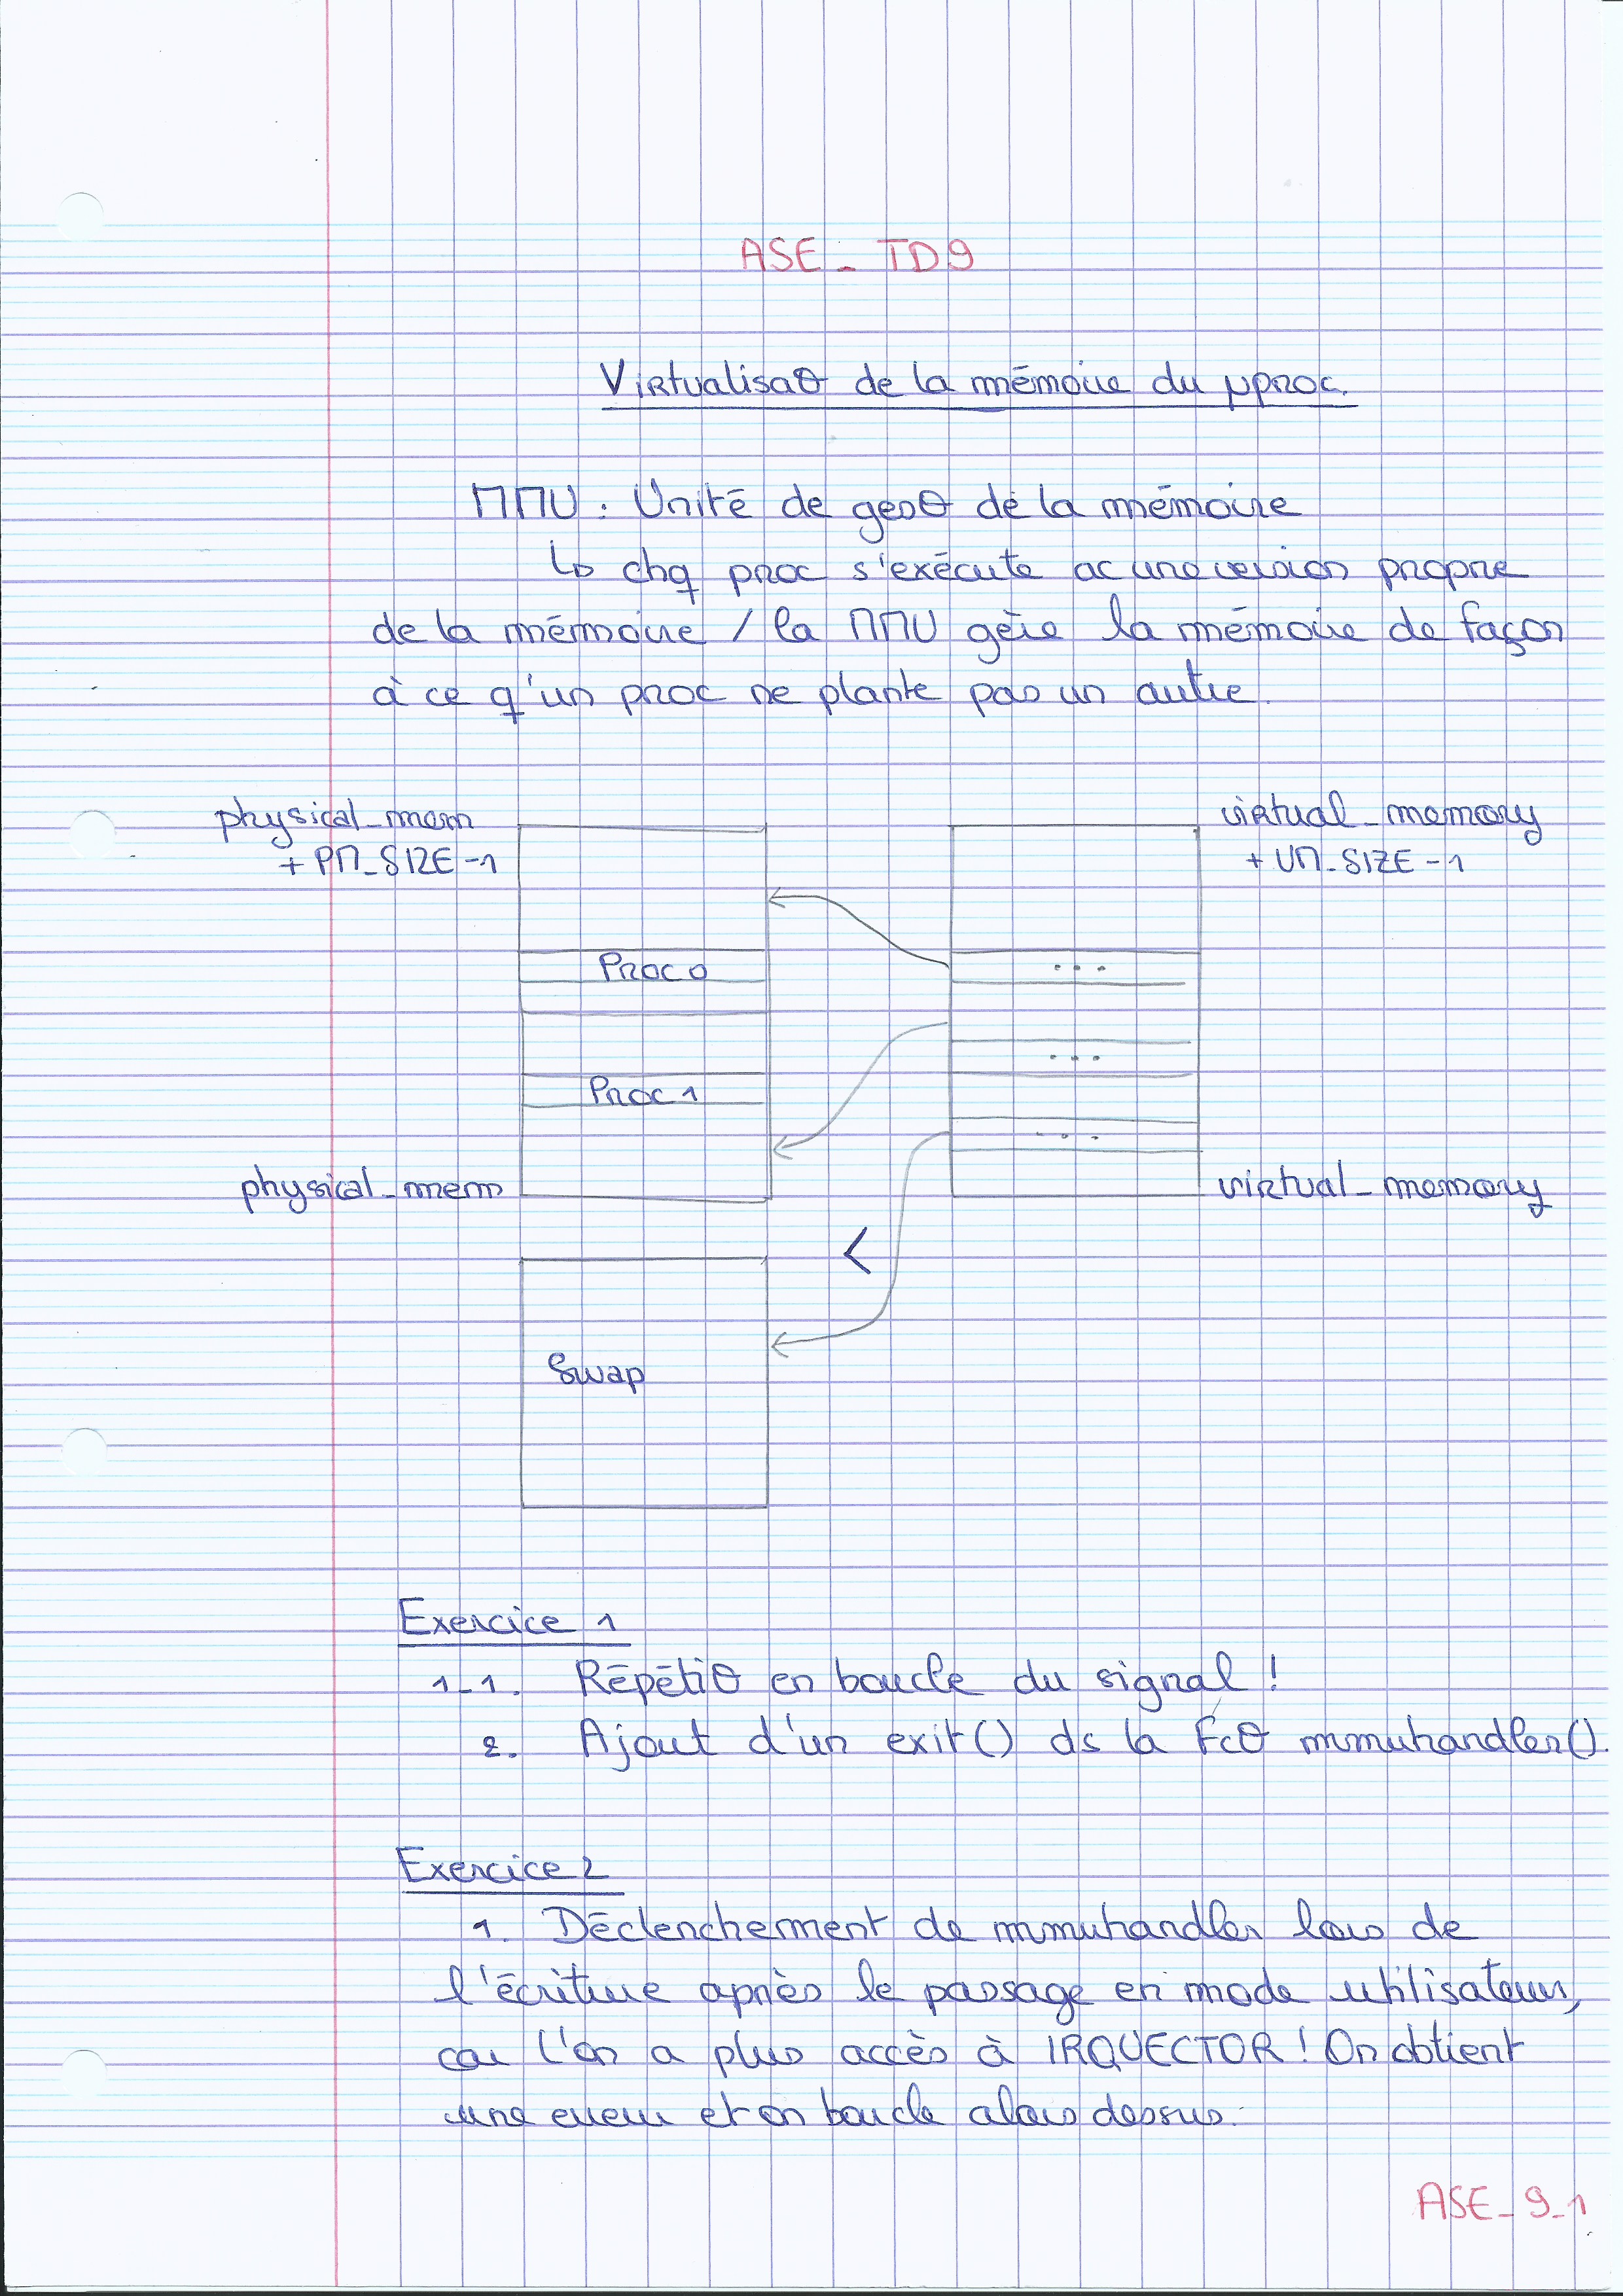 ASE_ TD9
Virtualisaθ de la mémoire du µproc.
MMU : Unité de gesθ de la mémoire
↳ chq proc s'exécute ac une version propre
de la mémoire / la MMU gère la mémoire de façon
à ce q'un proc ne plante pas un autre.
physical_mem
+ PM_SIZE -1
virtual_memory
+ VM_SIZE -1
Proc 0
...
...
Proc 1
...
physical_mem
virtual_memory
<
Swap
Exercice 1
1_1. Répétiθ en boucle du signal !
2. Ajout d'un exit() ds la fcθ mmuhandler().
Exercice 2
1. Déclenchement de mmuhandler lors de
l'écriture après le passage en mode utilisateur,
car l'on a plus accès à IRQVECTOR ! On obtient
une erreur et on boucle alors dessus.
ASE_9_1